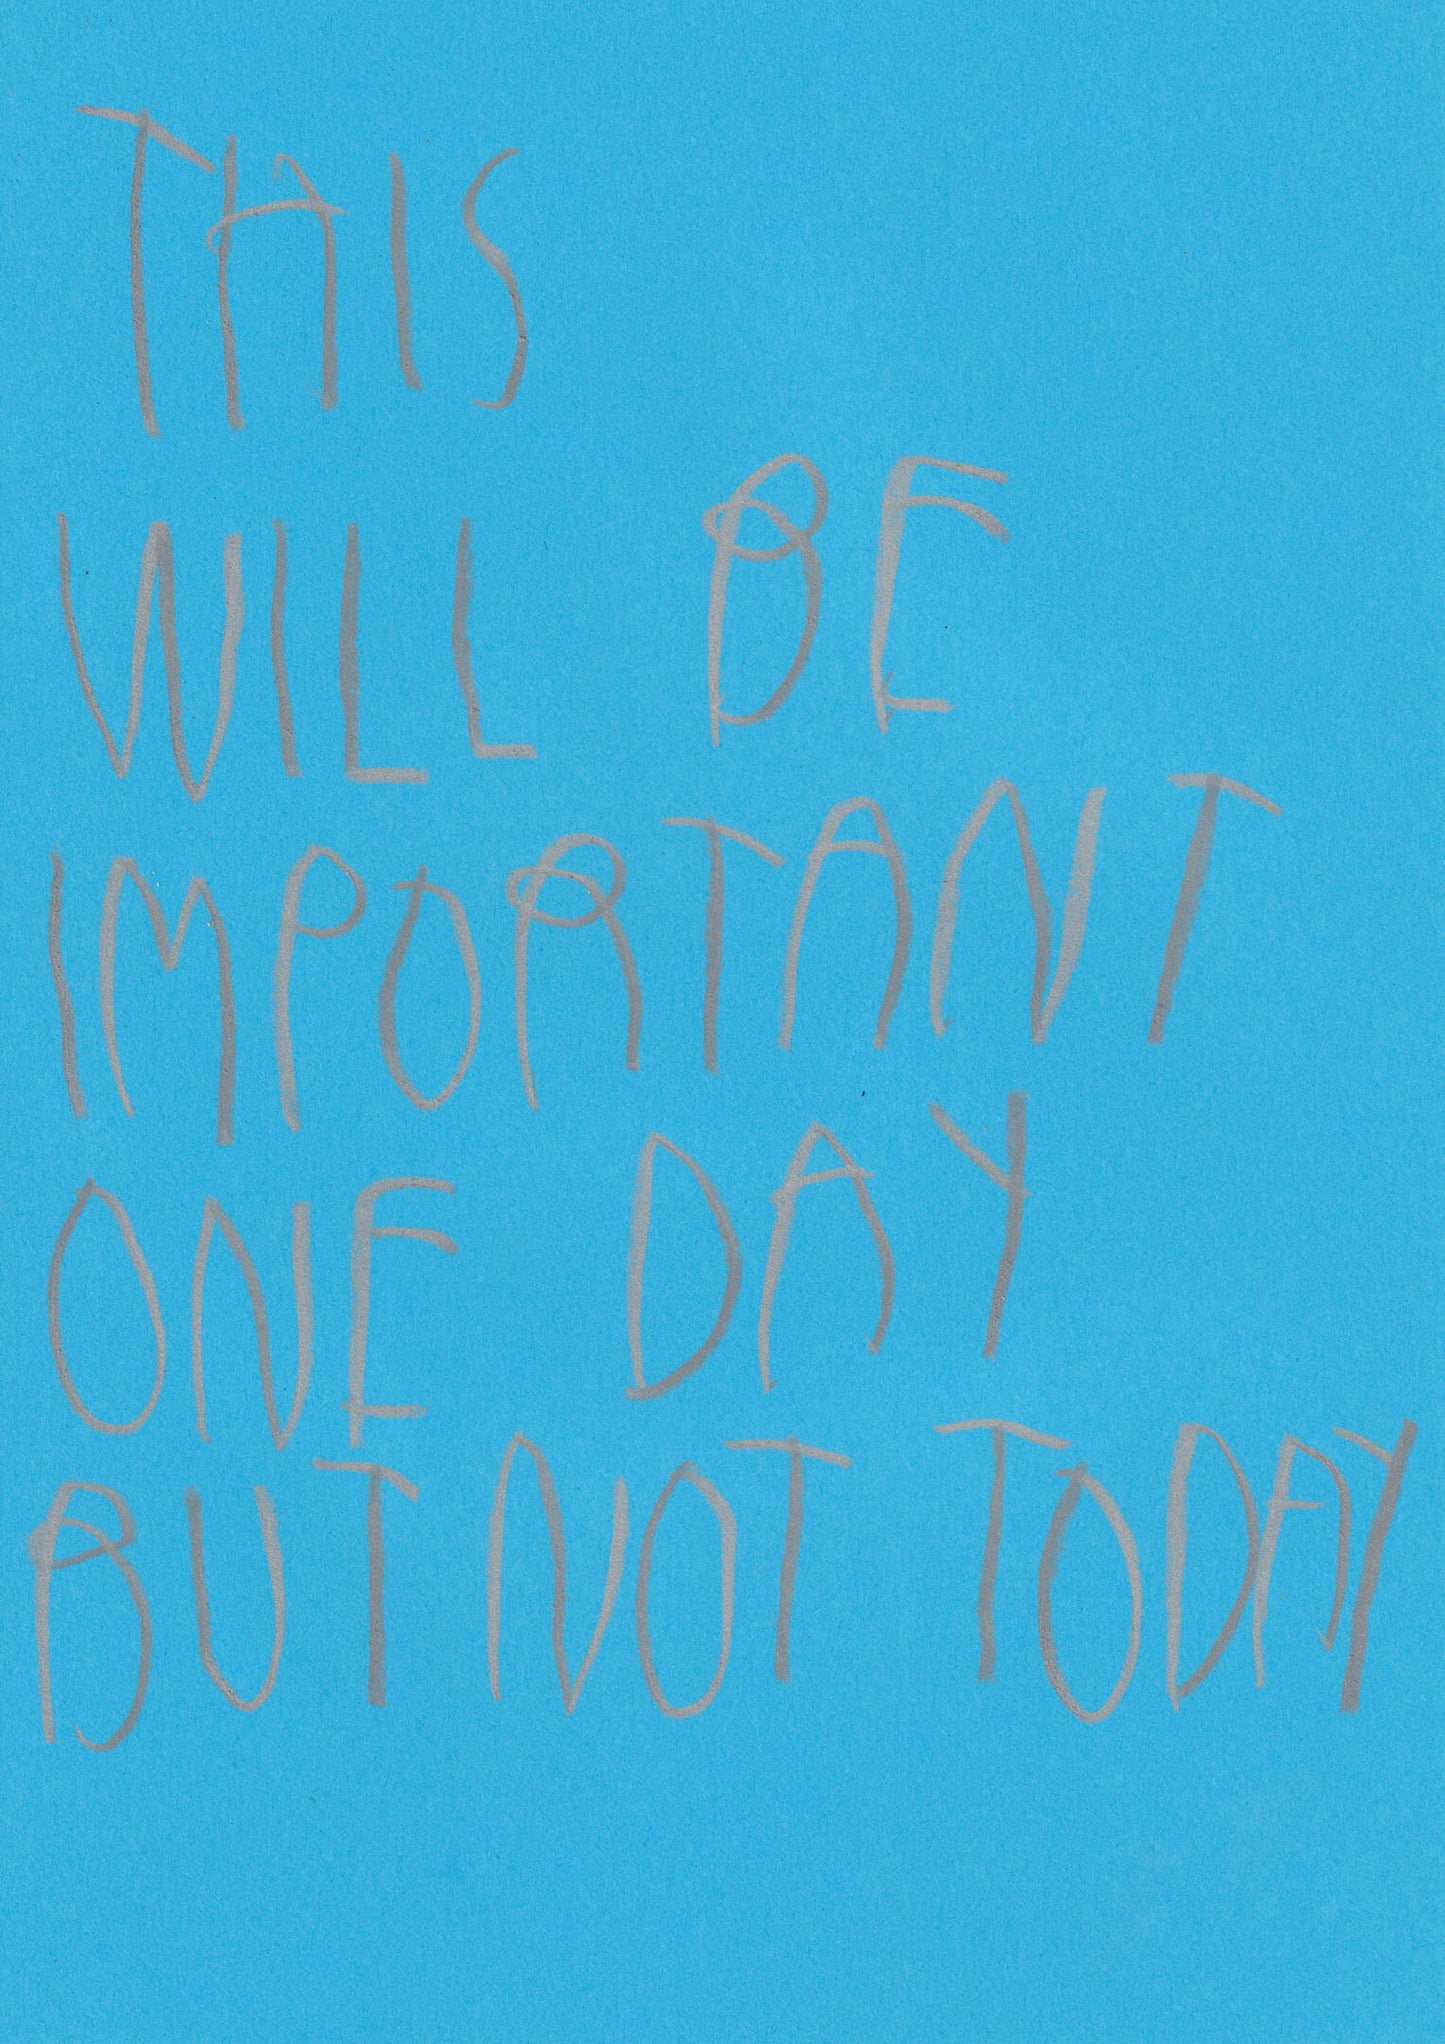 THIS
WILL BE
IMPORTANT
ONE DAY
BUT NOT TODAY